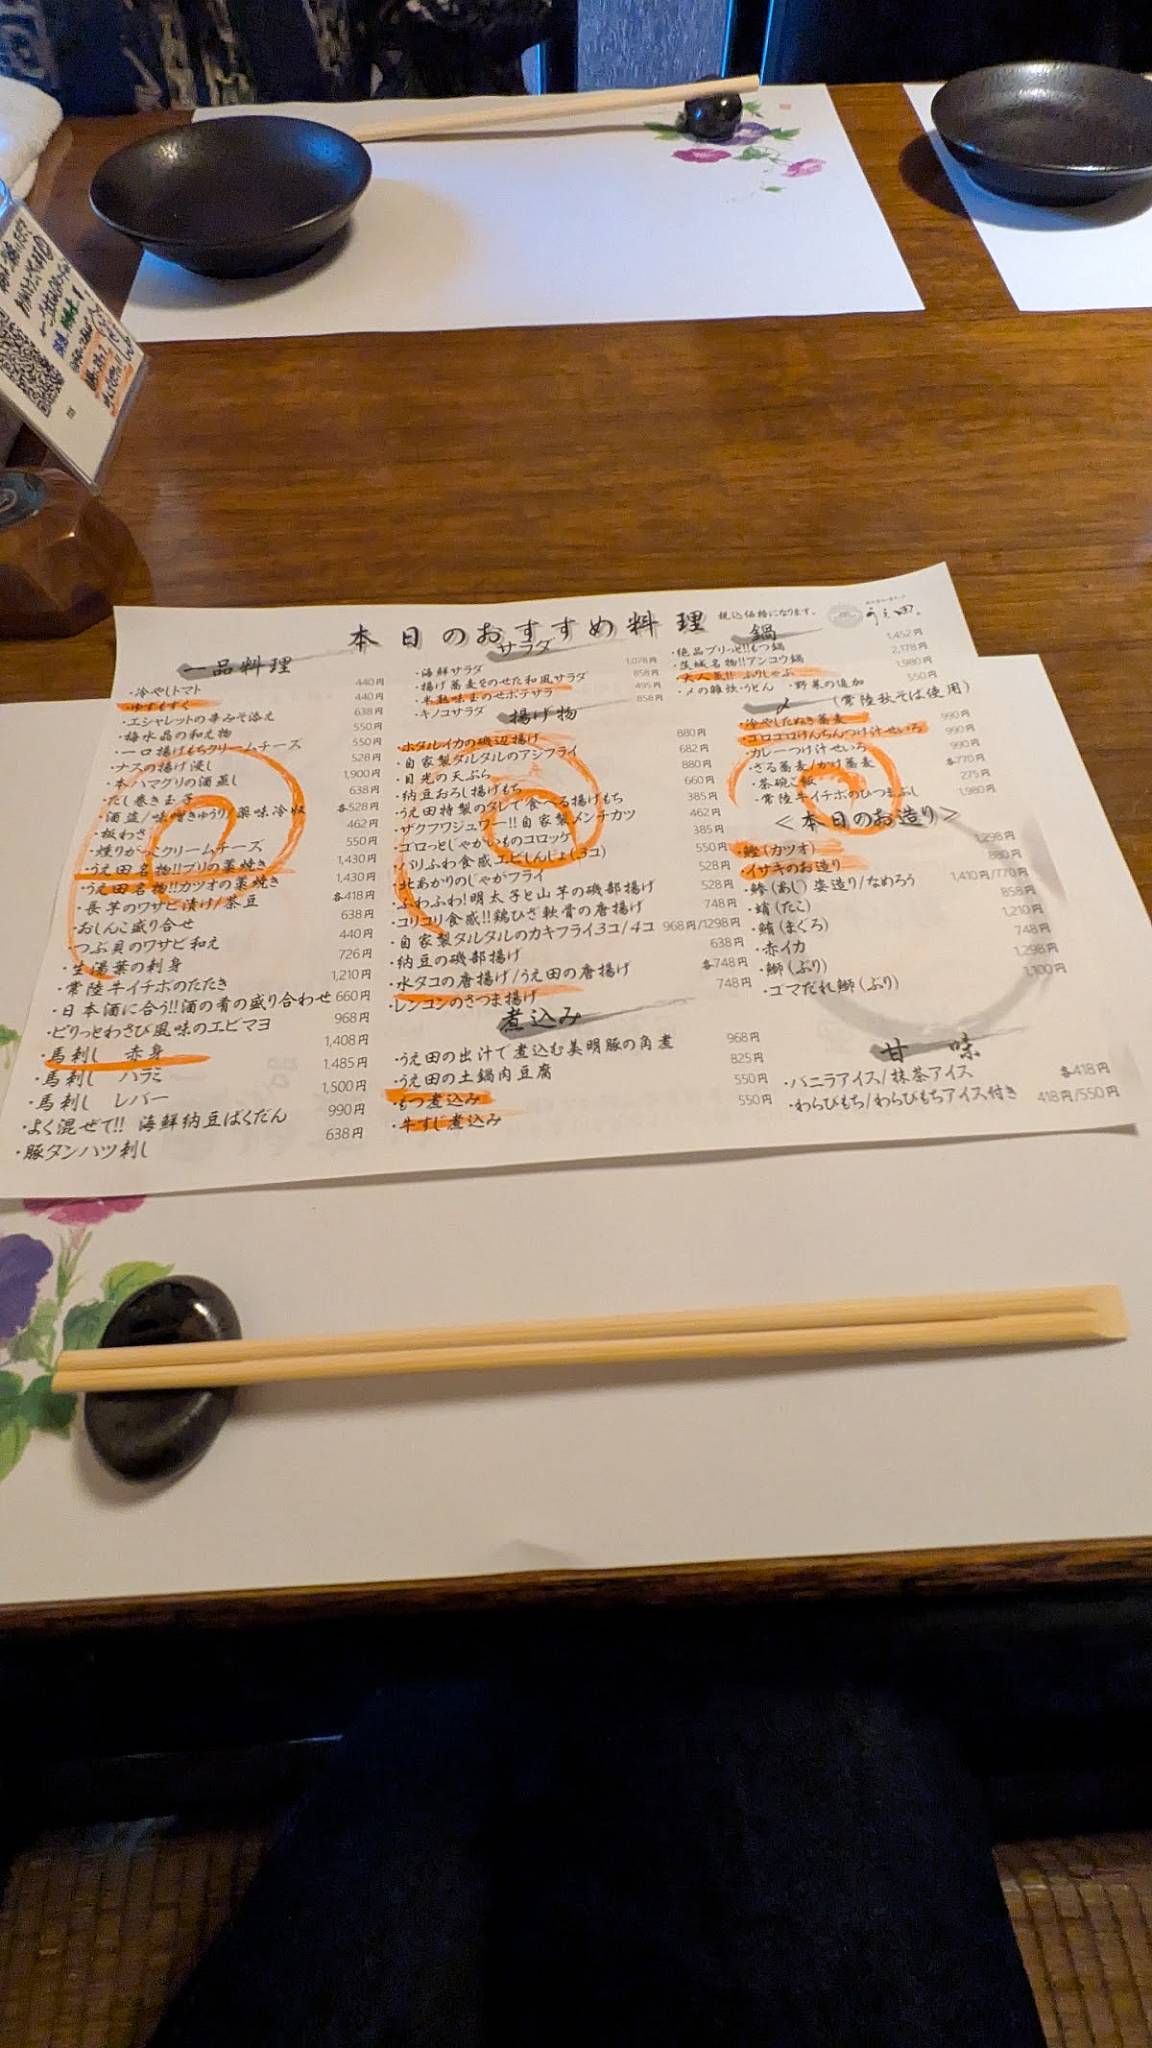 本日のおすすめ料理
税込価格になります。
うえ田。
一品料理
・冷やしトマト 440円
・ゆずもずく 440円
・エシャレットの辛みそ添え 638円
・梅水晶の和え物 550円
・一口揚げもちクリームチーズ 550円
・ナスの揚げ浸し 528円
・本ハマグリの酒蒸し 1,900円
・だし巻き玉子 638円
・酒盗/味噌きゅうり/薬味冷奴 各528円
・板わさ 462円
・燻りがっこクリームチーズ 550円
・うえ田名物!!ブリの藁焼き 1,430円
・うえ田名物!!カツオの藁焼き 1,430円
・長芋のワサビ漬け/茶豆 各418円
・おしんこ盛り合せ 638円
・つぶ貝のワサビ和え 440円
・生湯葉の刺身 726円
・常陸牛イチボのたたき 1,210円
・日本酒に合う!!酒の肴の盛り合わせ 660円
・ピリっとわさび風味のエビマヨ 968円
・馬刺し 赤身 1,408円
・馬刺し ハラミ 1,485円
・馬刺し レバー 1,500円
・よく混ぜて!! 海鮮納豆ばくだん 990円
・豚タンハツ刺し 638円
サラダ
・海鮮サラダ 1,078円
・揚げ蕎麦をのせた和風サラダ 858円
・半熟味玉のせポテサラ 495円
・キノコサラダ 858円
揚げ物
・ホタルイカの磯辺揚げ 880円
・自家製タルタルのアジフライ 682円
・目光の天ぷら 880円
・納豆おろし揚げもち 660円
・うえ田特製のタレで食べる揚げもち 385円
・ザクフワジュワー!!自家製メンチカツ 462円
・ゴロっとじゃがいものコロッケ 385円
・パリふわ食感エビしんじょ(3コ) 550円
・北あかりのじゃがフライ 528円
・ふわふわ!明太子と山芋の磯部揚げ 528円
・コリコリ食感!!鶏ひざ軟骨の唐揚げ 748円
・自家製タルタルのカキフライ3コ/4コ 968円/1298円
・納豆の磯部揚げ 638円
・水タコの唐揚げ/うえ田の唐揚げ 各748円
・レンコンのさつま揚げ 748円
煮込み
・うえ田の出汁で煮込む美明豚の角煮 968円
・うえ田の土鍋肉豆腐 825円
・もつ煮込み 550円
・牛すじ煮込み 550円
鍋
・絶品プリっと!!もつ鍋 1,452円
・茨城名物!!アンコウ鍋 2,178円
・大人気!!ぶりしゃぶ 1,980円
・〆の雑炊・うどん ・野菜の追加 550円
〆 (常陸秋そば使用)
・冷やしたぬき蕎麦 990円
・ゴロゴロけんちんつけ汁せいろ 990円
・カレーつけ汁せいろ 990円
・ざる蕎麦/かけ蕎麦 各770円
・茶碗ご飯 275円
・常陸牛イチボのひつまぶし 1,980円
＜本日のお造り＞
・鰹(カツオ) 1,298円
・イサキのお造り 880円
・鯵(あじ)姿造り/なめろう 1,410円/770円
・蛸(たこ) 858円
・鮪(まぐろ) 1,210円
・赤イカ 748円
・鰤(ぶり) 1,298円
・ゴマだれ鰤(ぶり) 1,100円
甘味
・バニラアイス/抹茶アイス 各418円
・わらびもち/わらびもちアイス付き 418円/550円